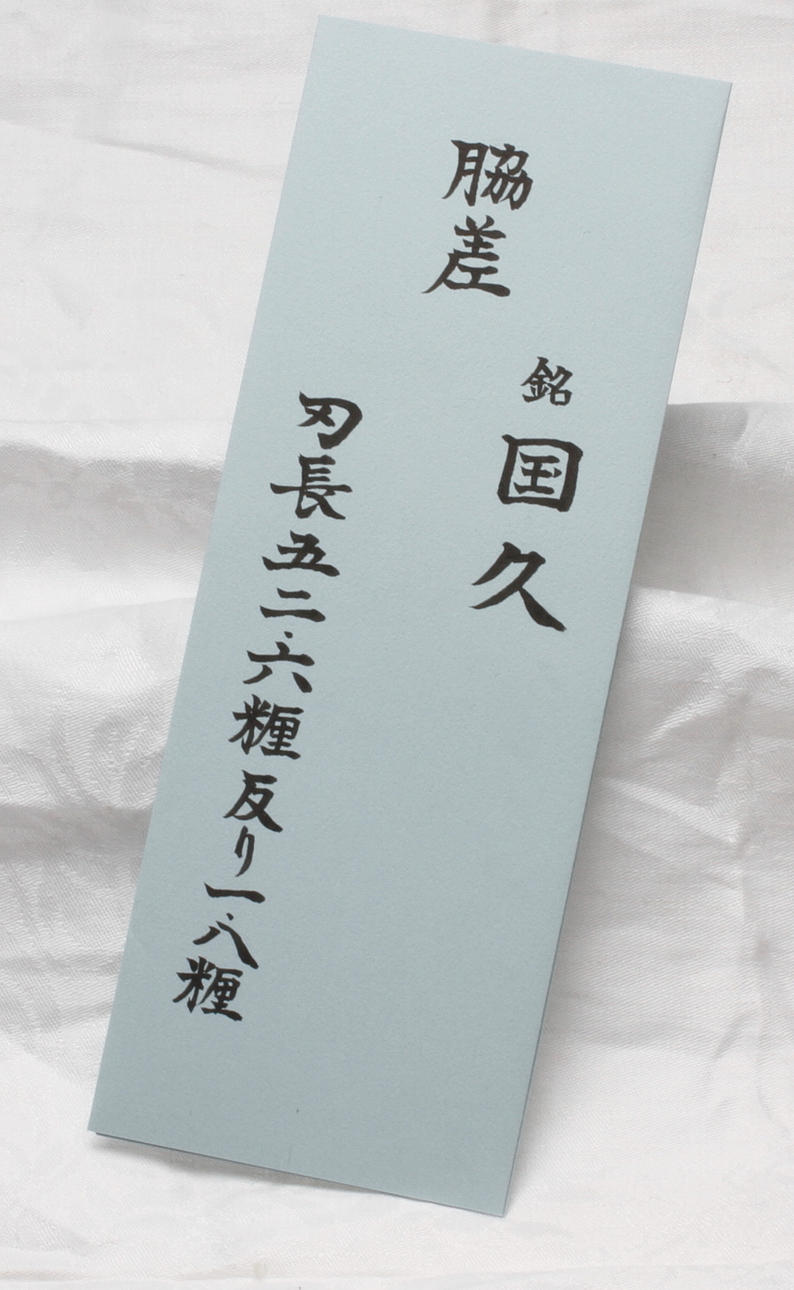 脇差
銘 国久
刃長五二・六糎反り一・八糎